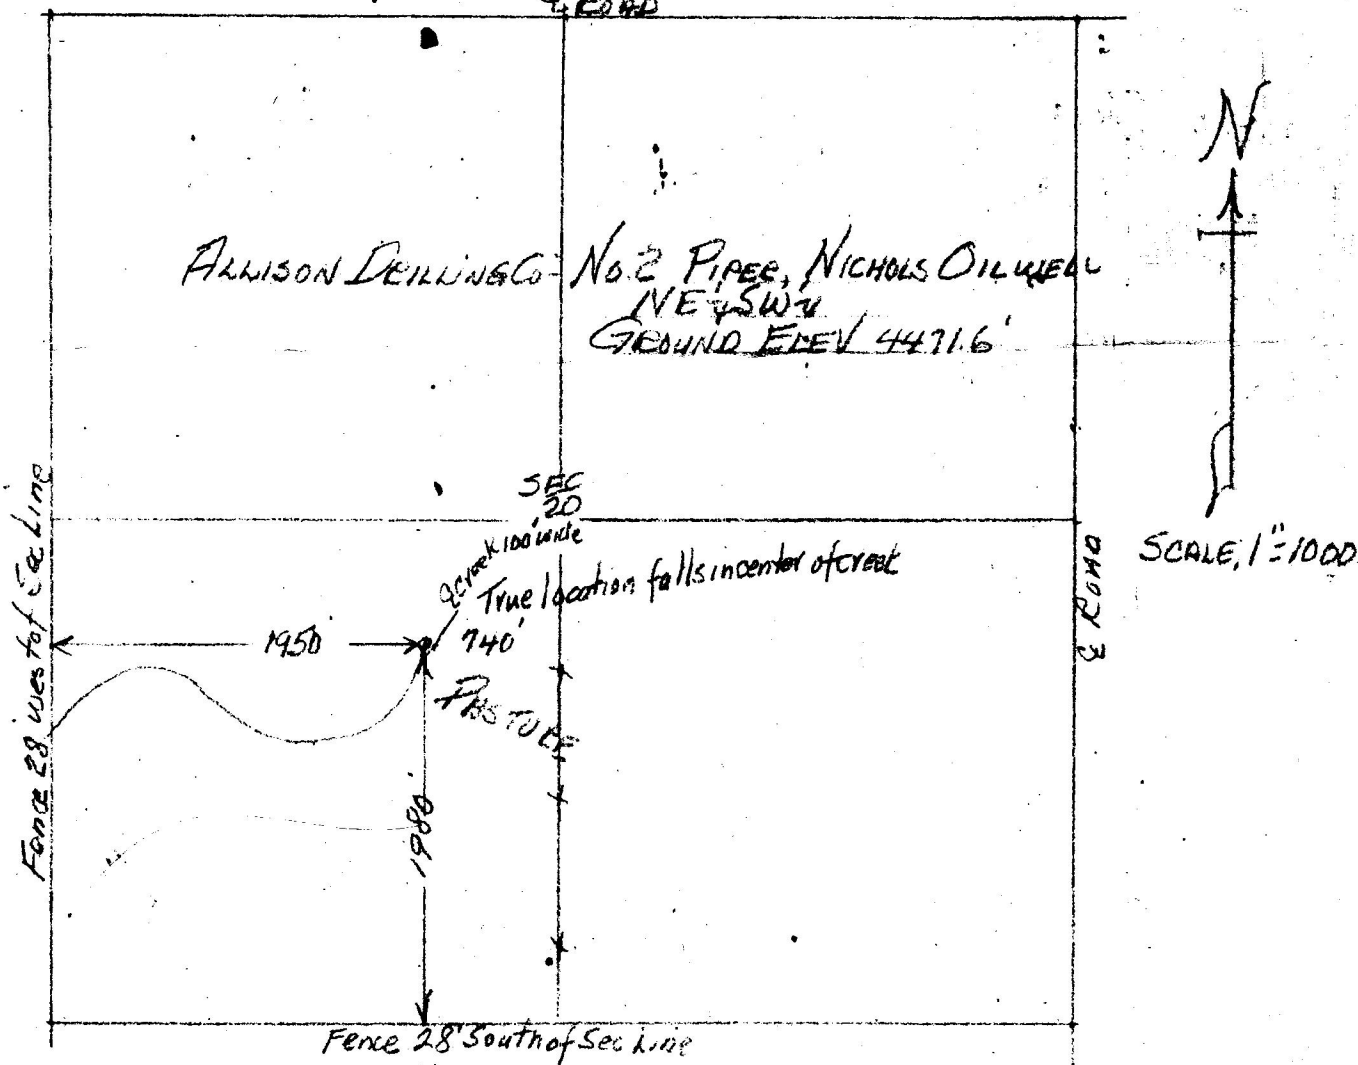 ℄ ROAD
N
ALLISON DRILLING Co - No. 2 PIPER, NICHOLS OIL WELL
NE¼SW¼
GROUND ELEV 4471.6'
SEC
20
℄ Creek 100' wide
True location falls in center of creek
1950'
740'
PASTURE
1980'
Fence 28' west of Sec Line
℄ ROAD
SCALE, 1"=1000
Fence 28' South of Sec Line